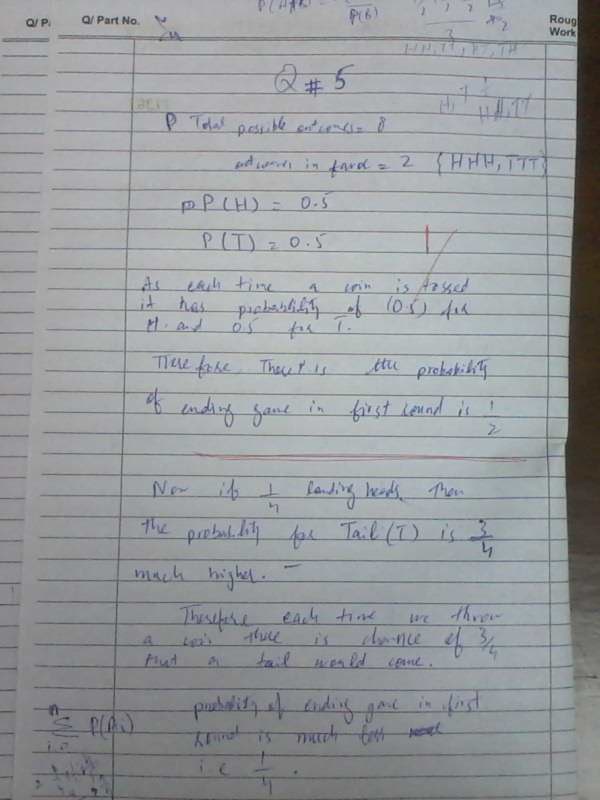 Q/ Pa
Q/ Part No.
Roug
Work
P(B)
3
HH, TT, HT, TH
H, T
HH, TT
Q # 5
P Total possible outcomes = 8
outcomes in favor = 2 {HHH, TTT}
P(H) = 0.5
P(T) = 0.5
As each time a coin is tossed
it has probability of (0.5) for
H. and 0.5 for T.
Therefore, There is the probability
of ending game in first round is 1/2
Now if 1/4 landing heads, then
the probability for Tail (T) is 3/4
much higher. –
Therefore each time we throw
a coin there is chance of 3/4
that a tail would come.
probability of ending game in first
round is much less
i.e 1/4 .
n
∑ P(Ai)
i=0